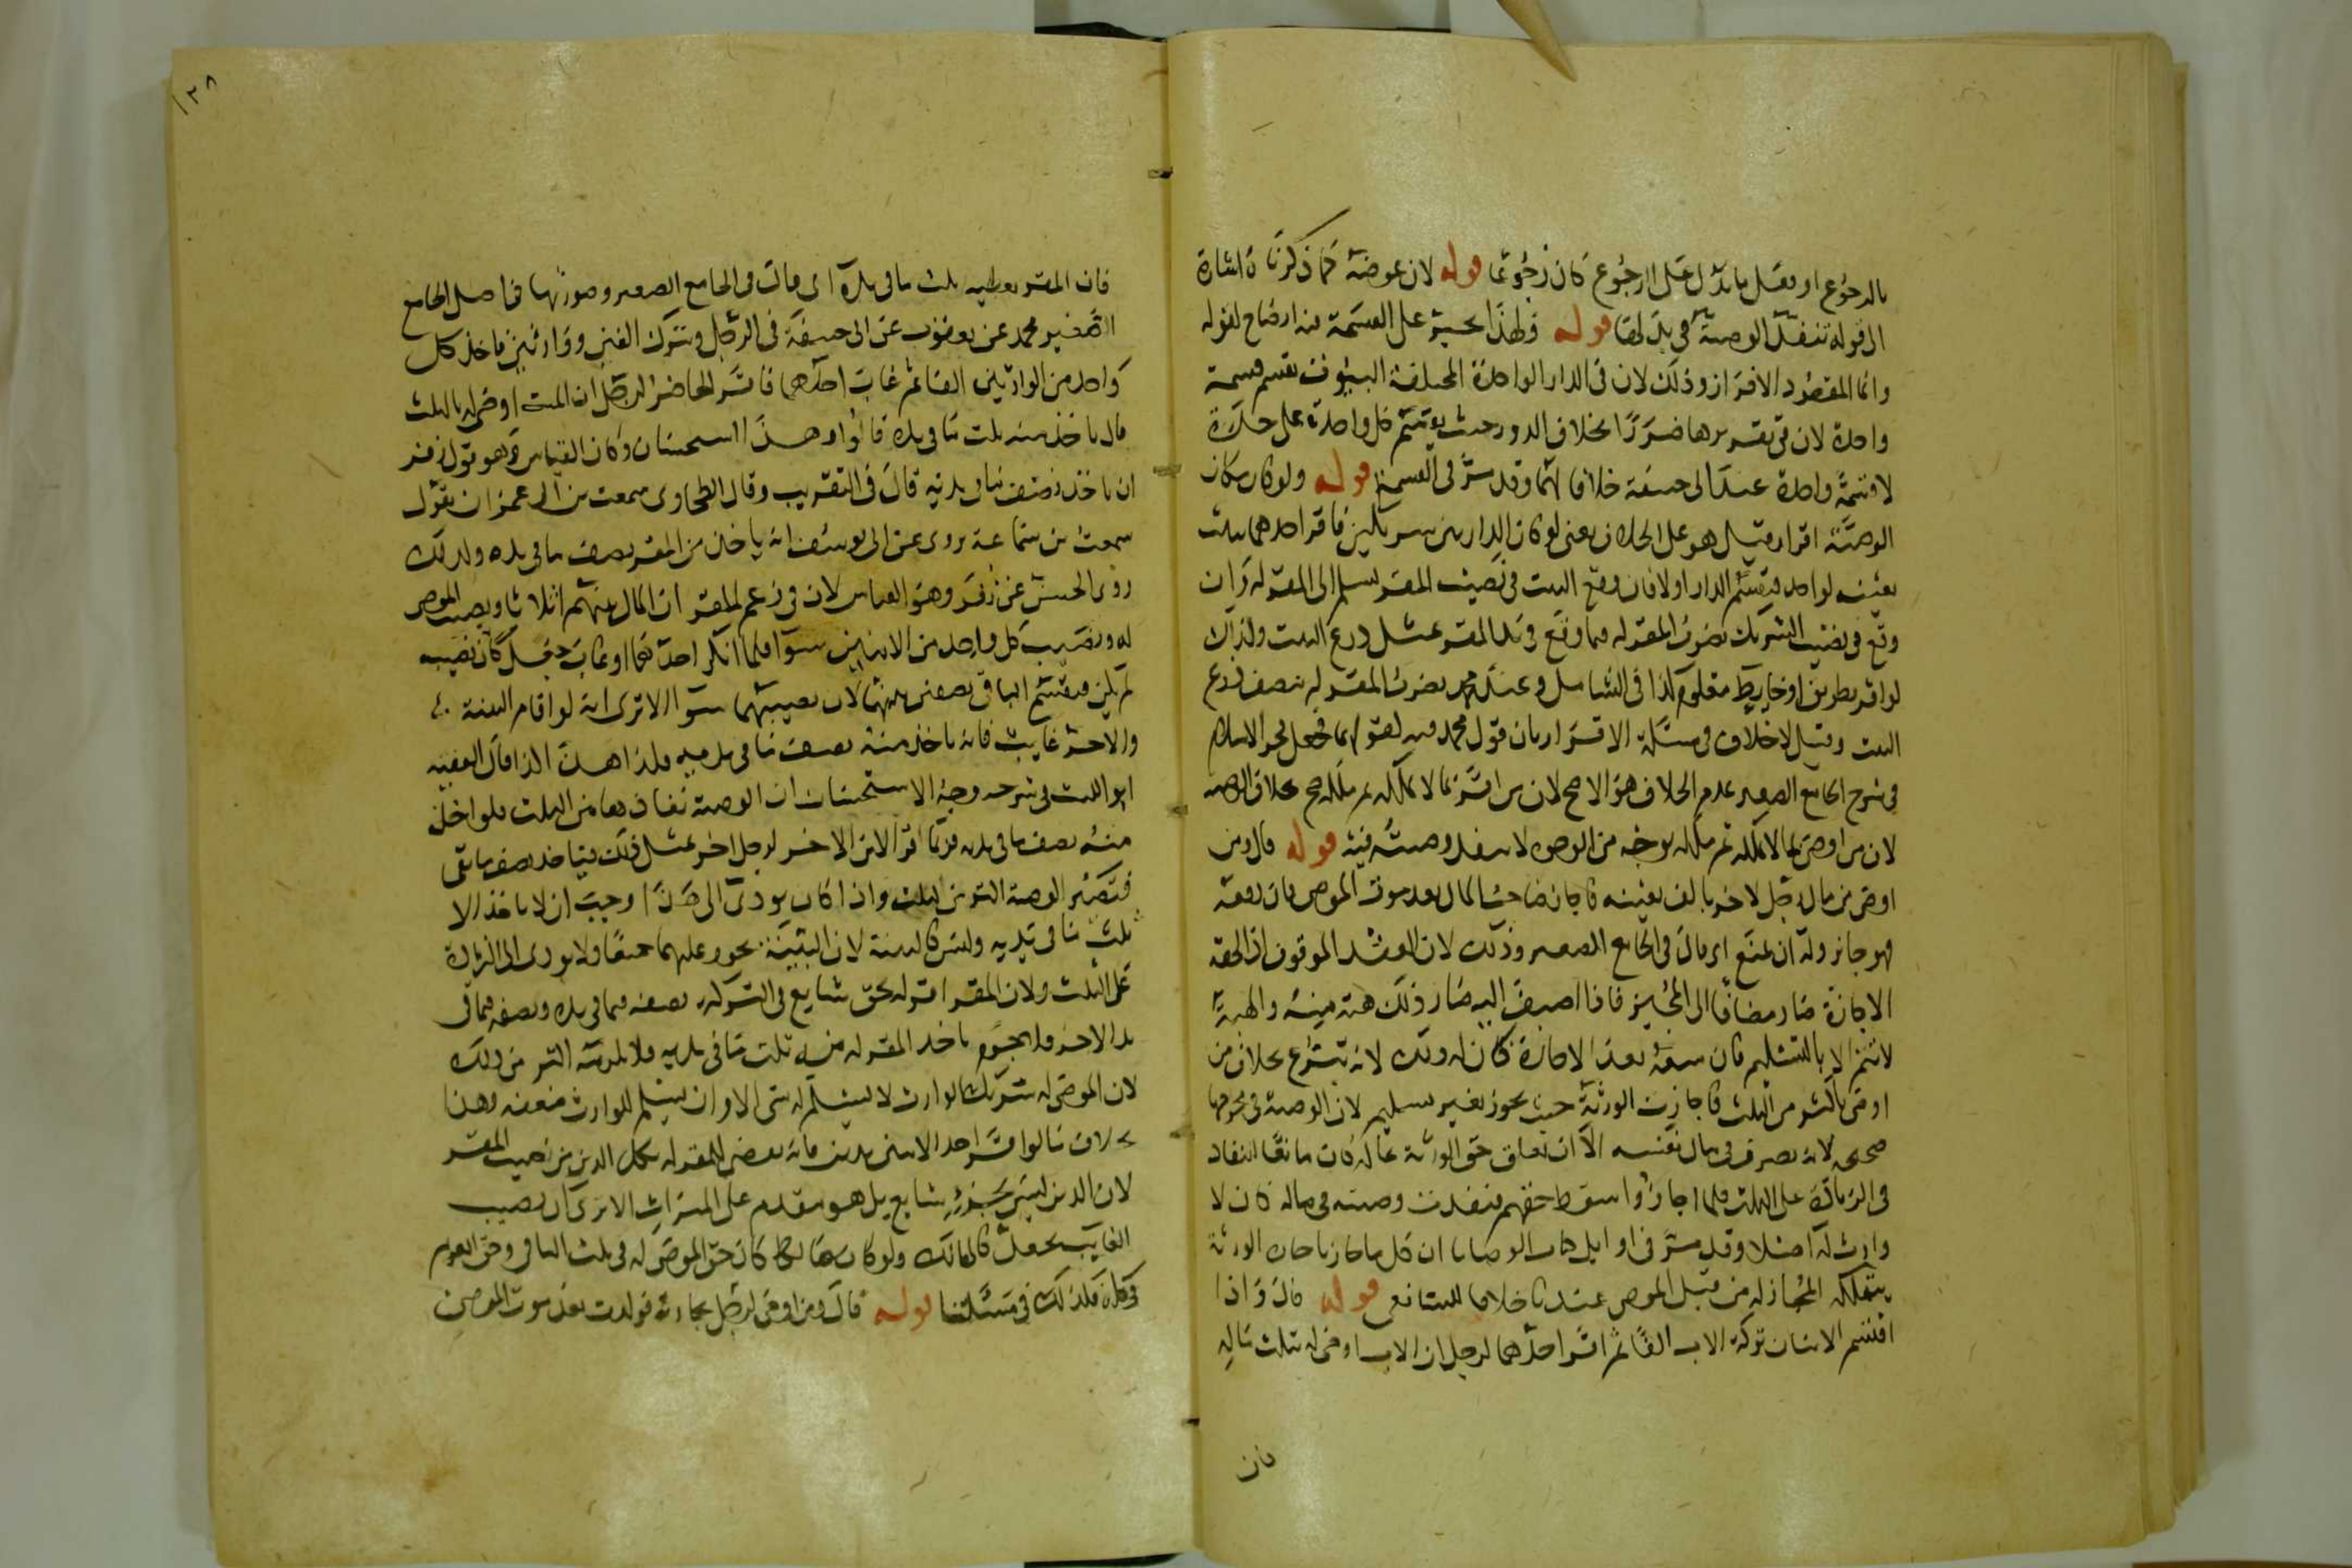 بالرجوع او بفعل يدل على الرجوع كان رجوعا قوله لان عوضه كما ذكرنا اشارة
الى قوله تنفذ الوصية في بدلها قوله ولهذا يجبر على القسمة فيه ايضاح لقوله
وانما المقصود الافراز وذلك لان في الدار الواحدة المختلفة البيوت تقسم قسمة
واحدة لان في تقريرها ضررا بخلاف الدور حيث يقسم كل واحدة على حدة
لا قسمة واحدة عند ابى حنيفة خلافا لهما وقد مر في القسمة قوله ولو كان مكان
الوصية اقرار قيل هو على الخلاف يعنى لو كان الدار بين شريكين فاقر احدهما ببيت
بعينه لواحد فتقسم الدار اولا فان وقع البيت في نصيب المقر يسلم الى المقر له وان
وقع في نصيب الشريك يضرب المقر له فيما وقع في يد المقر بمثل ذرع البيت وكذلك
لو اقر بطريق او حايط معلوم كذا في الشامل وعند محمد يضرب المقر له بنصف ذرع
البيت وقيل لا خلاف في مسئلة الاقرار بان قول محمد فيه كقولهما فجعل فخر الاسلام
في شرح الجامع الصغير عدم الخلاف هو الاصح لان من اقر بما لا يملكه ثم ملكه صح بخلاف الوصية
لان من اوصى بما لا يملكه ثم ملكه بوجه من الوجوه لا تنفذ وصيته فيه قوله قال ومن
اوصى من مال رجل لاخر بالف بعينه فاجاز صاحب المال بعد موت الموصى فان دفعه
فهو جائز وله ان يمنع اى قال في الجامع الصغير وذلك لان العقد الموقوف اذا لحقه
الاجازة صار مضافا الى المجيز فاذا اضيف اليه صار ذلك هبة منه والهبة
لا تتم الا بالتسليم فان منعه بعد الاجازة كان له ذلك لانه تبرع بخلاف من
اوصى باكثر من الثلث فاجازت الورثة حيث يجوز بغير تسليم لان الوصية في مخرجها
صحيحه لانه تصرف في مال نفسه الا ان تعلق حق الورثة بماله كان مانعا النفاذ
في الزيادة على الثلث فلما اجازوا سقط حقهم فنفذت وصيته في ماله كان لا
وارث له اصلا وقد مر في اوايل كتاب الوصايا ان كل ما جاز باجازة الورثة
يتملكه المجاز له من قبل الموصى عندنا خلافا للشافعى قوله قال واذا
اقتسم الابنان تركة الاب الفا ثم اقر احدهما لرجل ان الاب اوصى له بثلث ماله
فان
١٣٨
فان المقر يعطيه ثلث ما في يده اى قال في الجامع الصغير وصورتها في اصل الجامع
الصغير محمد عن يعقوب عن ابى حنيفة في الرجل وترك الفين ووارثين فاخذ كل
واحد من الوارثين الفا ثم غاب احدهما فاقر الحاضر لرجل ان الميت اوصى له بالثلث
قال ياخذ منه ثلث ما في يده قالوا وهذا استحسان وكان القياس وهو قول زفر
ان ياخذ نصف ما في يديه قال في التقريب وقال الطحاوى سمعت بن ابى عمران يقول
سمعت بن سماعة يروى عن ابى يوسف انه ياخذ من المقر نصف ما في يده وكذلك
روى الحسن عن زفر وهو القياس لان في زعم المقر ان المال بينهم اثلاثا ونصيب الموصى
له ونصيب كل واحد من الابنين سوآ فلما انكر احدهما او غاب جعل كان نصيبه
لم يكن فيقسم الباقى نصفين بينهما لان نصيبهما سوآ الا ترى انه لو اقام البينة
والاخر غايب فانه ياخذ منه نصف ما في يديه فكذا هذا الذا قال الفقيه
ابو الليث في شرحه وجه الاستحسان ان الوصية نفاذها من الثلث فلو اخذ
منه نصف ما في يده فربما اقر الابن الاخر لرجل اخر بمثل ذلك فياخذ نصف ما بقى
فتصير الوصية اكثر من الثلث واذا كان يودى الى هذا وجب ان لا ياخذ الا
ثلث ما في يديه وليس كالبينة لان البينة يجوز عليهما جميعا ولا يودى الى الزيادة
على الثلث ولان المقر اقر له بحق شايع في التركة نصفه فيما في يده ونصفه فيما في
يد الاخر فلا جرم ياخذ المقر له منه ثلث ما في يديه ولا يلزمه اكثر من ذلك
لان الموصى له شريك الوارث لا يسلم له شى الا وان يسلم للوارث ضعفه وهذا
بخلاف ما لو اقر احد الابنين بدين فانه يعطى للمقر له كل الدين من نصيب المقر
لان الدين ليس بجزء شايع بل هو مقدم على الميراث الا ترى ان نصيب
الغايب يجعل كالهالك ولو كان هالكا كان حق الموصى له في ثلث الباقى وحق الغريم
في كله فكذلك في مسئلتنا قوله قال ومن اوصى لرجل بجارية فولدت بعد موت الموصى